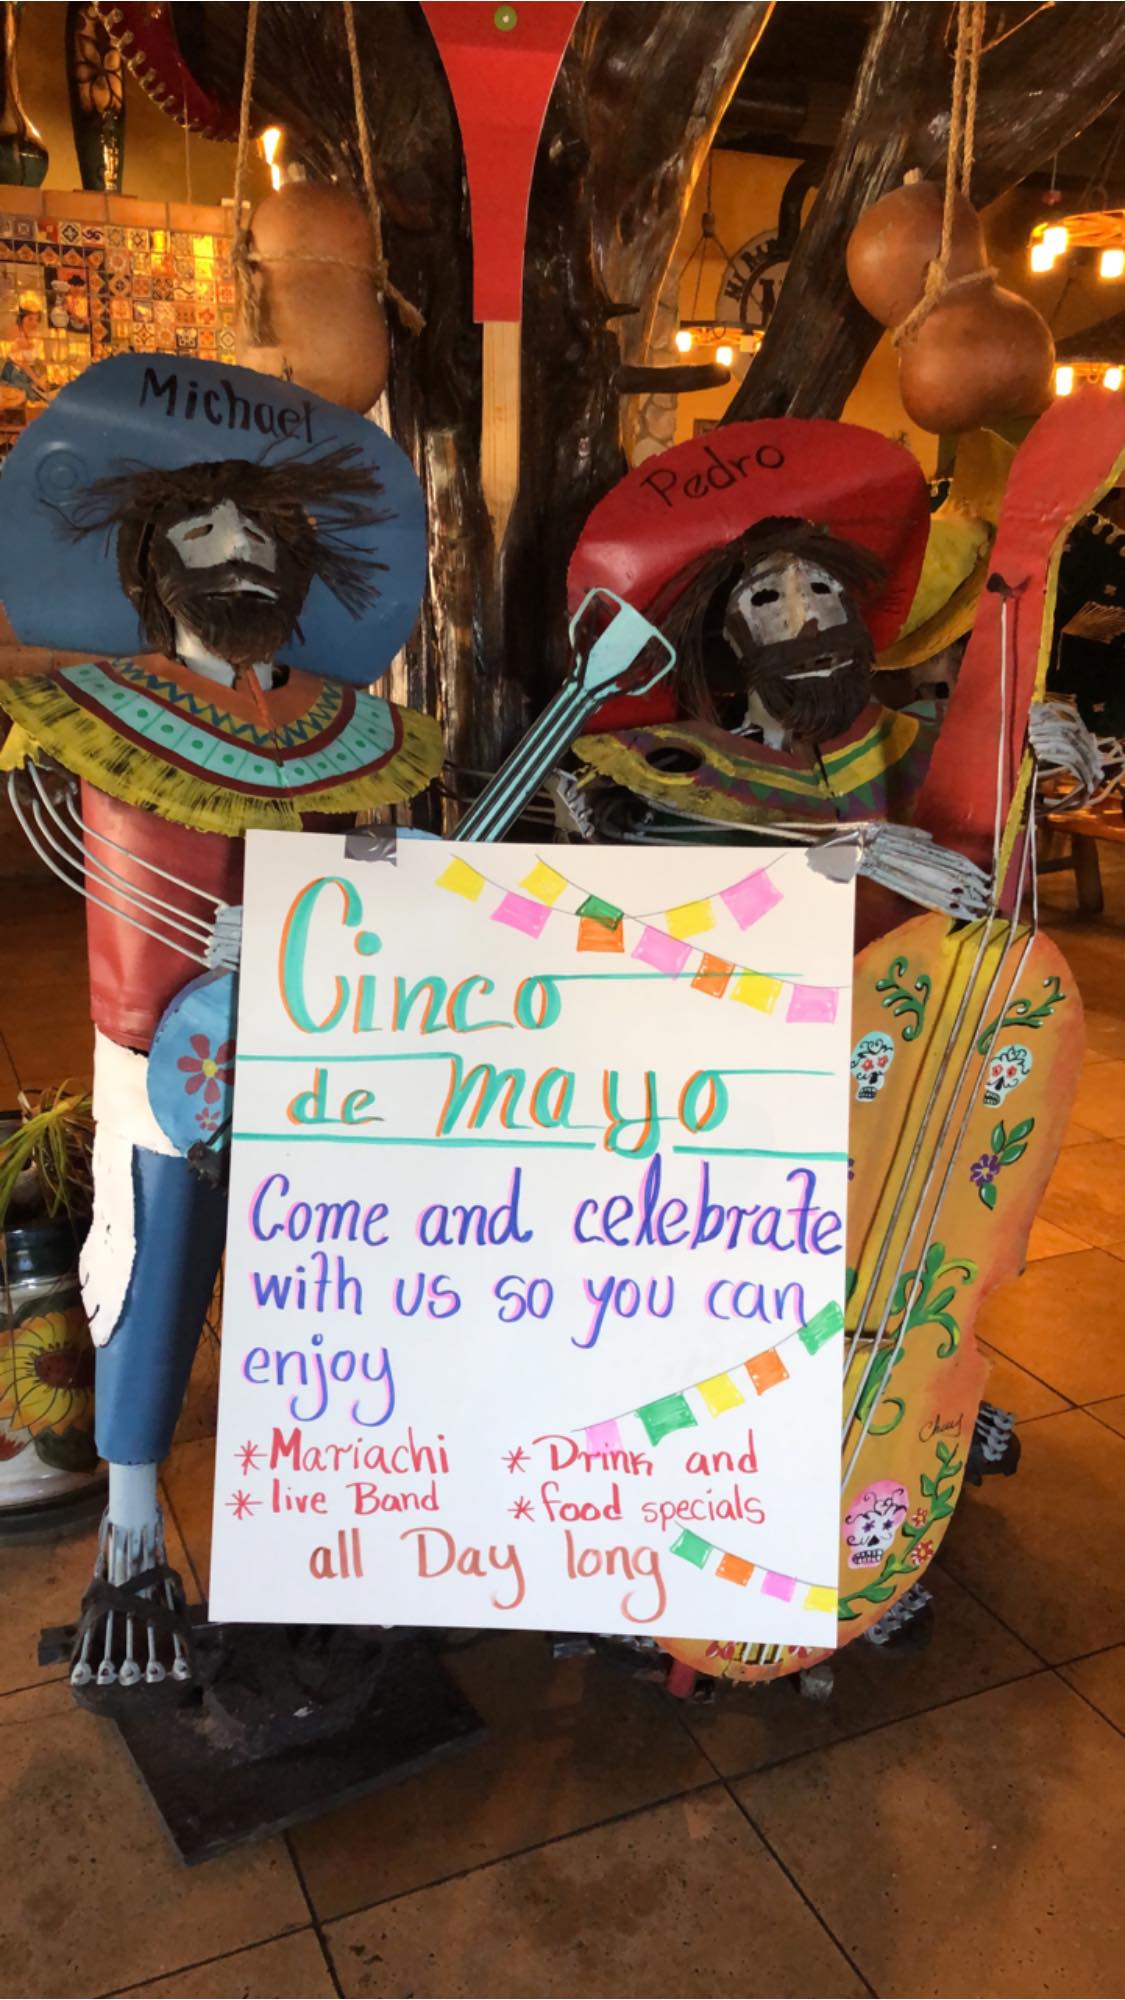 Michael
Pedro
Cinco
de mayo
Come and celebrate
with us so you can
enjoy
*Mariachi
*live Band
*Drink and
*food specials
all Day long